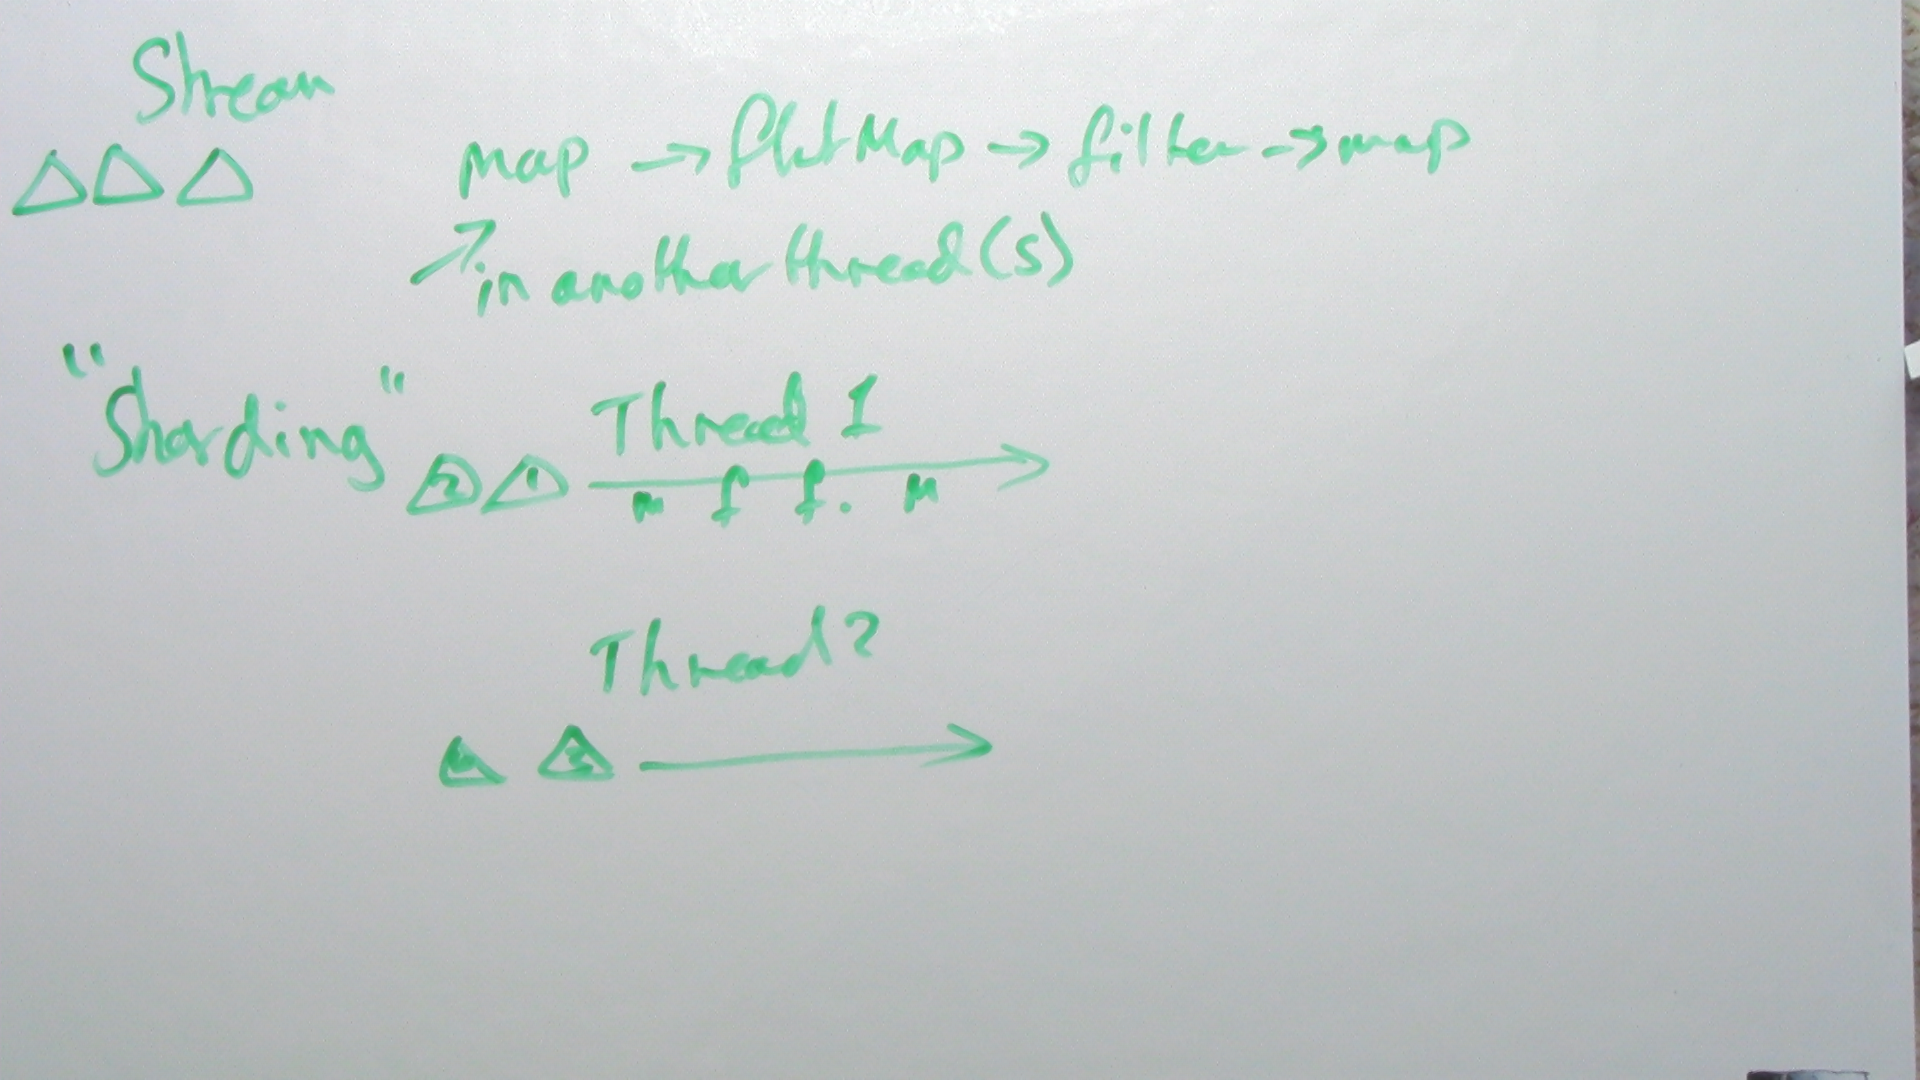 Stream
map → flatMap → filter → map
in another thread(s)
"Sharding"
Thread 1
2 1
m f f. M
Thread 2
3